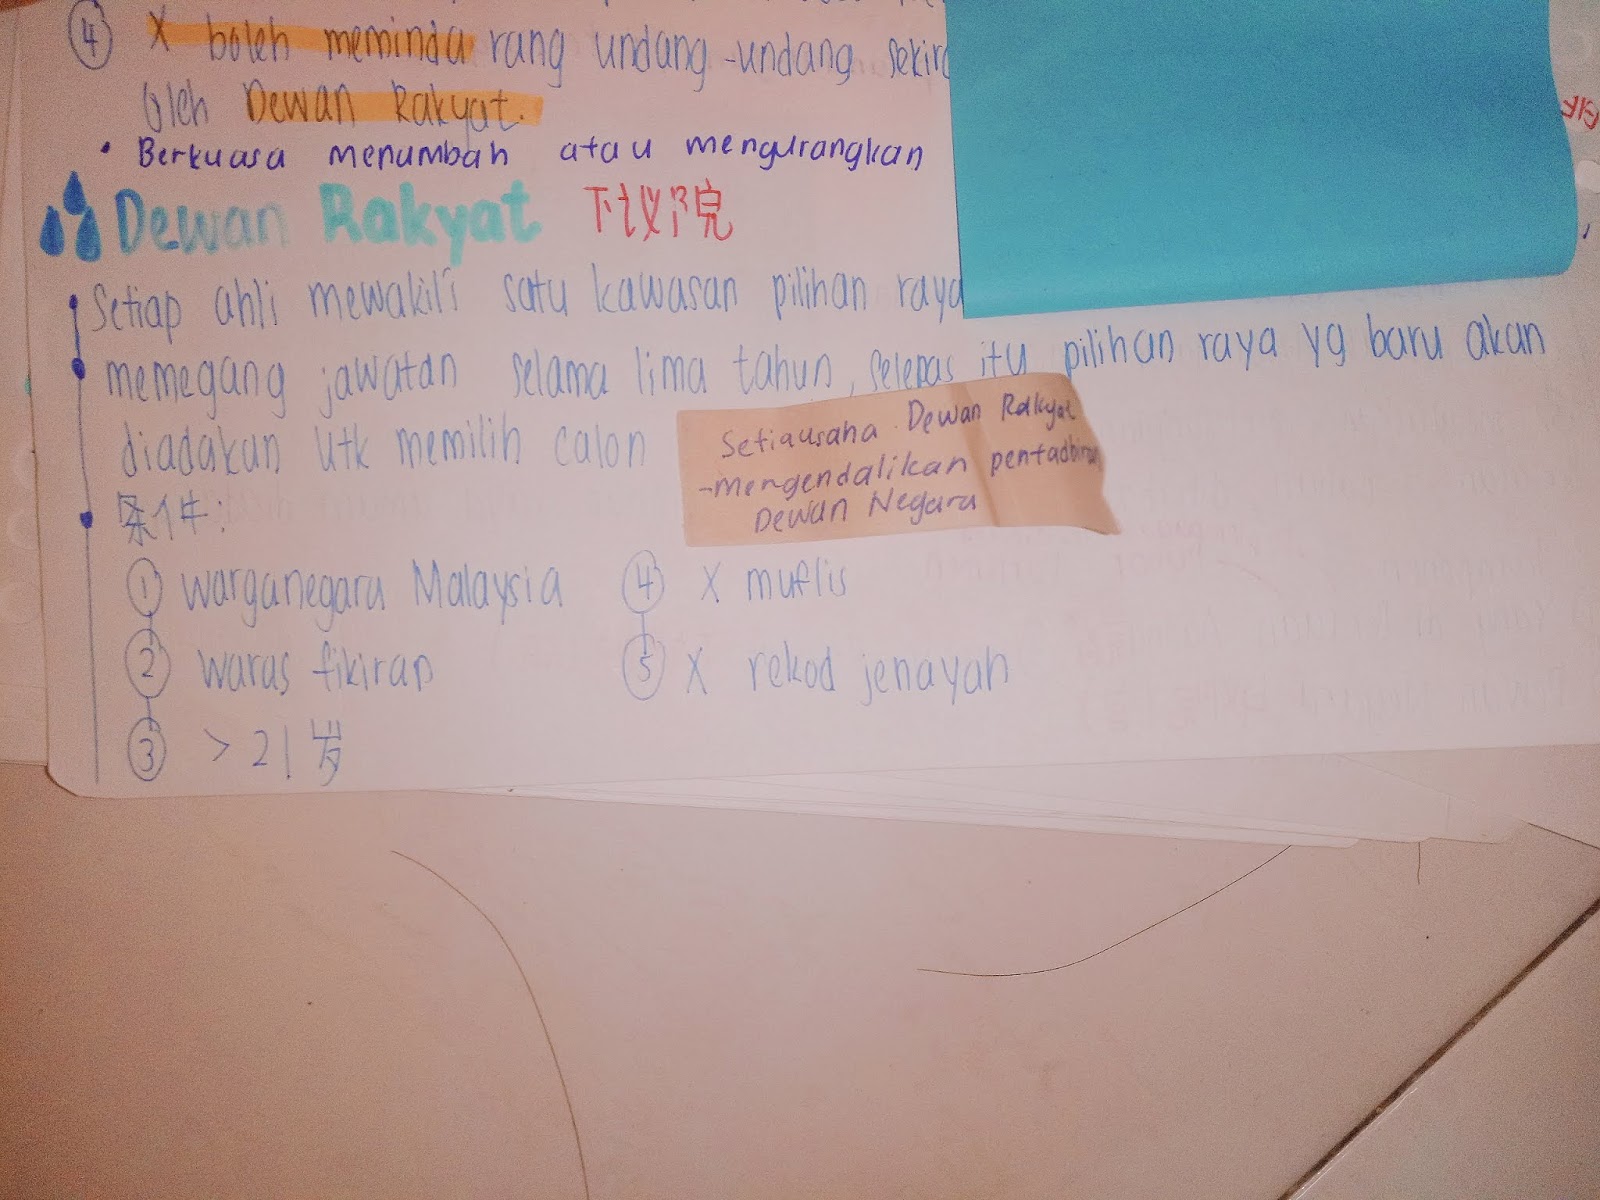 ④ X boleh meminda rang undang-undang
oleh Dewan Rakyat.
• Berkuasa menumbah atau mengurangkan
Dewan Rakyat 下议院
Setiap ahli mewakili satu kawasan pilihan raya
memegang jawatan selama lima tahun, selepas itu pilihan raya yg baru akan
diadakan utk memilih calon
Setiausaha Dewan Rakyat
-mengendalikan
Dewan Negara
条件:
① warganegara Malaysia
② waras fikiran
③ > 21岁
④ X muflis
⑤ X rekod jenayah